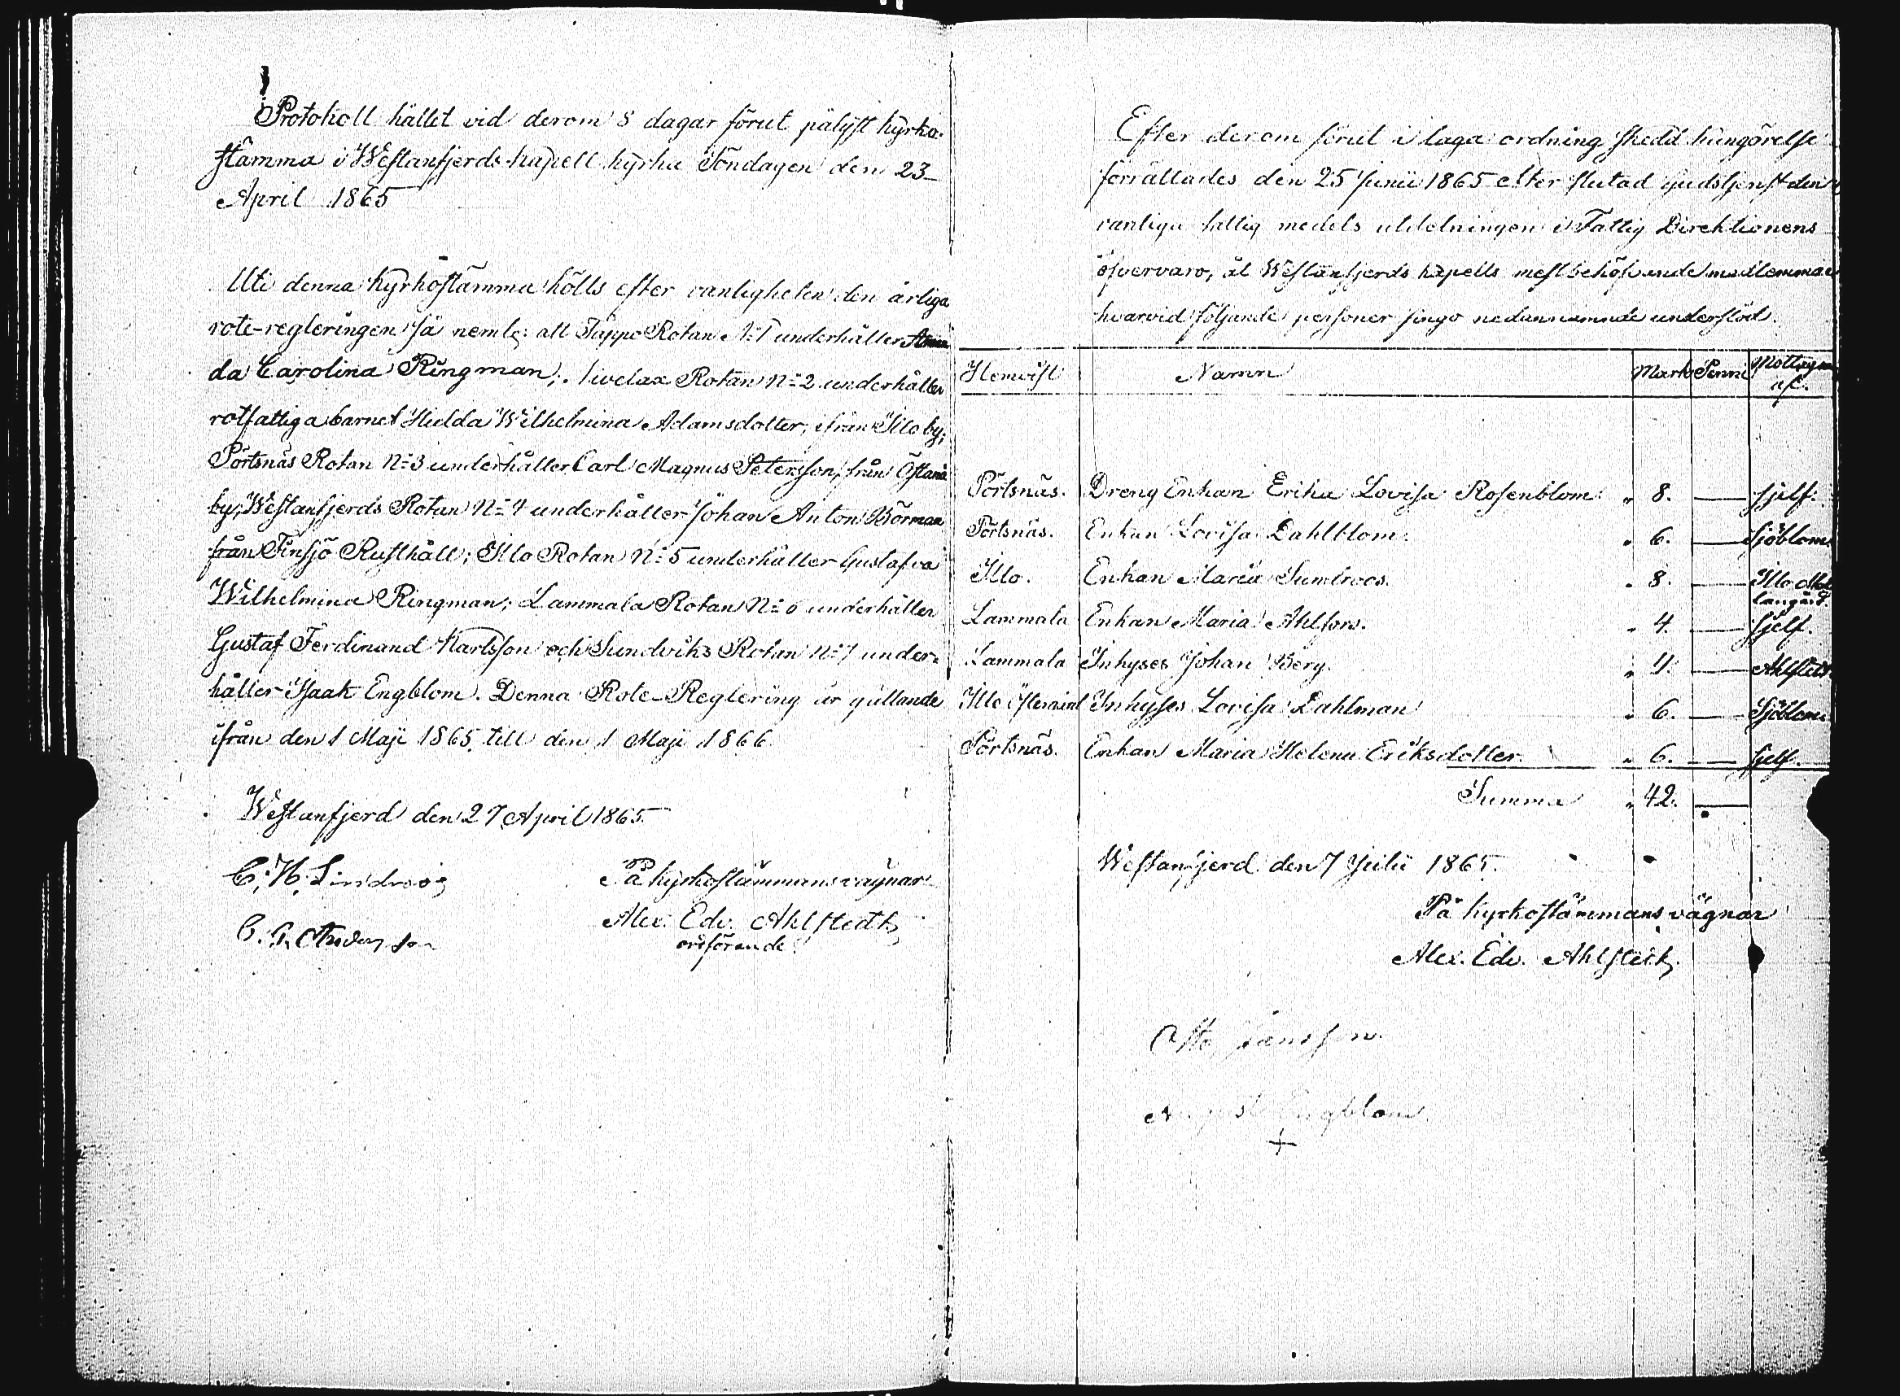 Protokoll hållet vid derom 8 dagar förut pålyst kyrko-
stämma i Westanfjerds kapell kyrka Söndagen den 23
April 1865
Uti denna kyrkostämma hölls efter vanligheten den årliga
rote-regleringen så neml: att Tappo Rotan N:1 underhåller Aman
da Carolina Ringman; Nivelax Rotan N:2 underhåller
rotfattiga barnet Hilda Wilhelmina Adamsdotter, ifrån Illo by;
Pörtsnäs Rotan N:3 underhåller Carl Magnus Petersson, från Östanå
by; Westanfjerds Rotan N:4 underhåller Johan Anton Börman
från Finsjö Rusthåll; Illo Rotan N:5 underhåller Gustafva
Wilhelmina Ringman; Lammala Rotan N:6 underhåller
Gustaf Ferdinand Karlsson och Sundviks Rotan N:7 under-
håller Isaak Engblom. Denna Rote-Reglering är gällande
ifrån den 1 Maji 1865 till den 1 Maji 1866.
Westanfjerd den 27 April 1865.
C. H. Lindroos
På kyrkostämmans vägnar
Alex. Edv. Ahlstedt
C. G. Anderson
ordförande
Efter derom förut i laga ordning skedd kungörelse
förrättades den 25 Junii 1865 efter slutad Gudstjenst den
vanliga fattig medels utdelningen i Fattig Direktionens
öfvervaro, åt Westanfjerds kapells mest behöfvande medlemmar
hvarvid följande personer fingo nedannämnde understöd.
Hemvist Namn Mark Penni Mottagen
af.
Pörtsnäs. Dreng Enkan Erika Lovisa Rosenblom. " 8. — sjelf.
Pörtsnäs. Enkan Lovisa Dahlblom. " 6. — Sjöblom.
Illo. Enkan Maria Sundroos. " 8. — Illo
Lammala Enkan Maria Ahlfors. " 4. — sjelf.
Lammala Inhyses Johan Berg. " 4. — Ahlstedt.
Illo Inhyses Lovisa Dahlman " 6. — Sjöblom.
Pörtsnäs. Enkan Maria Helena Eriksdotter " 6. — sjelf.
Summa " 42. —
Westanfjerd den 7 Julii 1865.
På kyrkostämmans vägnar
Alex. Edv. Ahlstedt
Otto Jansson.
August Engblom
+